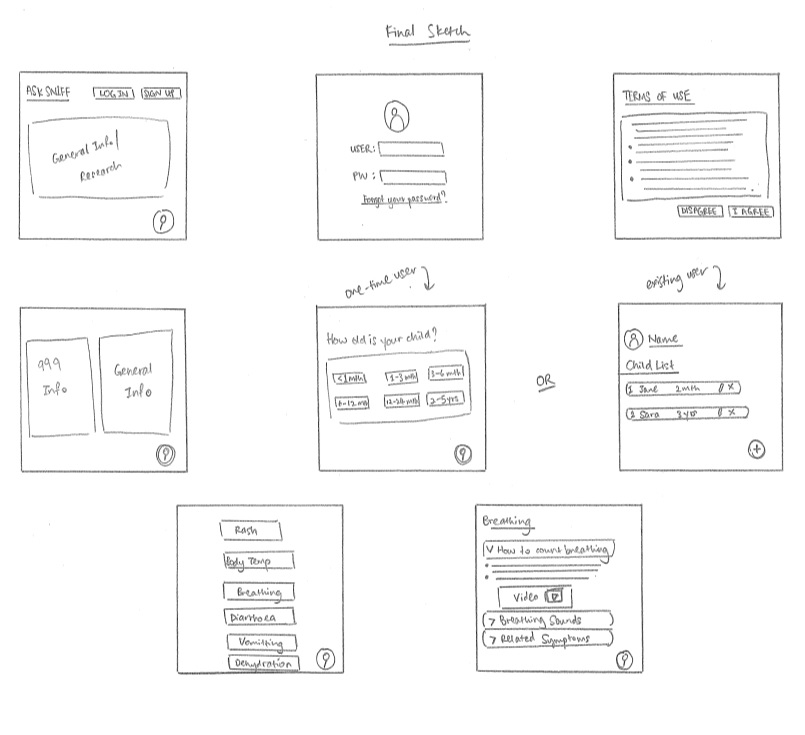 Final Sketch
ASK SNIFF
LOG IN
SIGN UP
General Info/
Research
?
USER:
PW:
Forgot your password?
TERMS OF USE
DISAGREE
I AGREE
one-time user
existing user
999
Info
General
Info
?
How old is your child?
<1 mth
1-3 mth
3-6 mth
6-12 mth
12-24 mth
2-5 yrs
?
OR
Name
Child List
1 Jane 2mth X
2 Sara 3 yo X
+
Rash
Body Temp
Breathing
Diarrhoea
Vomitting
Dehydration
?
Breathing
V How to count breathing
Video
> Breathing Sounds
> Related Symptoms
?